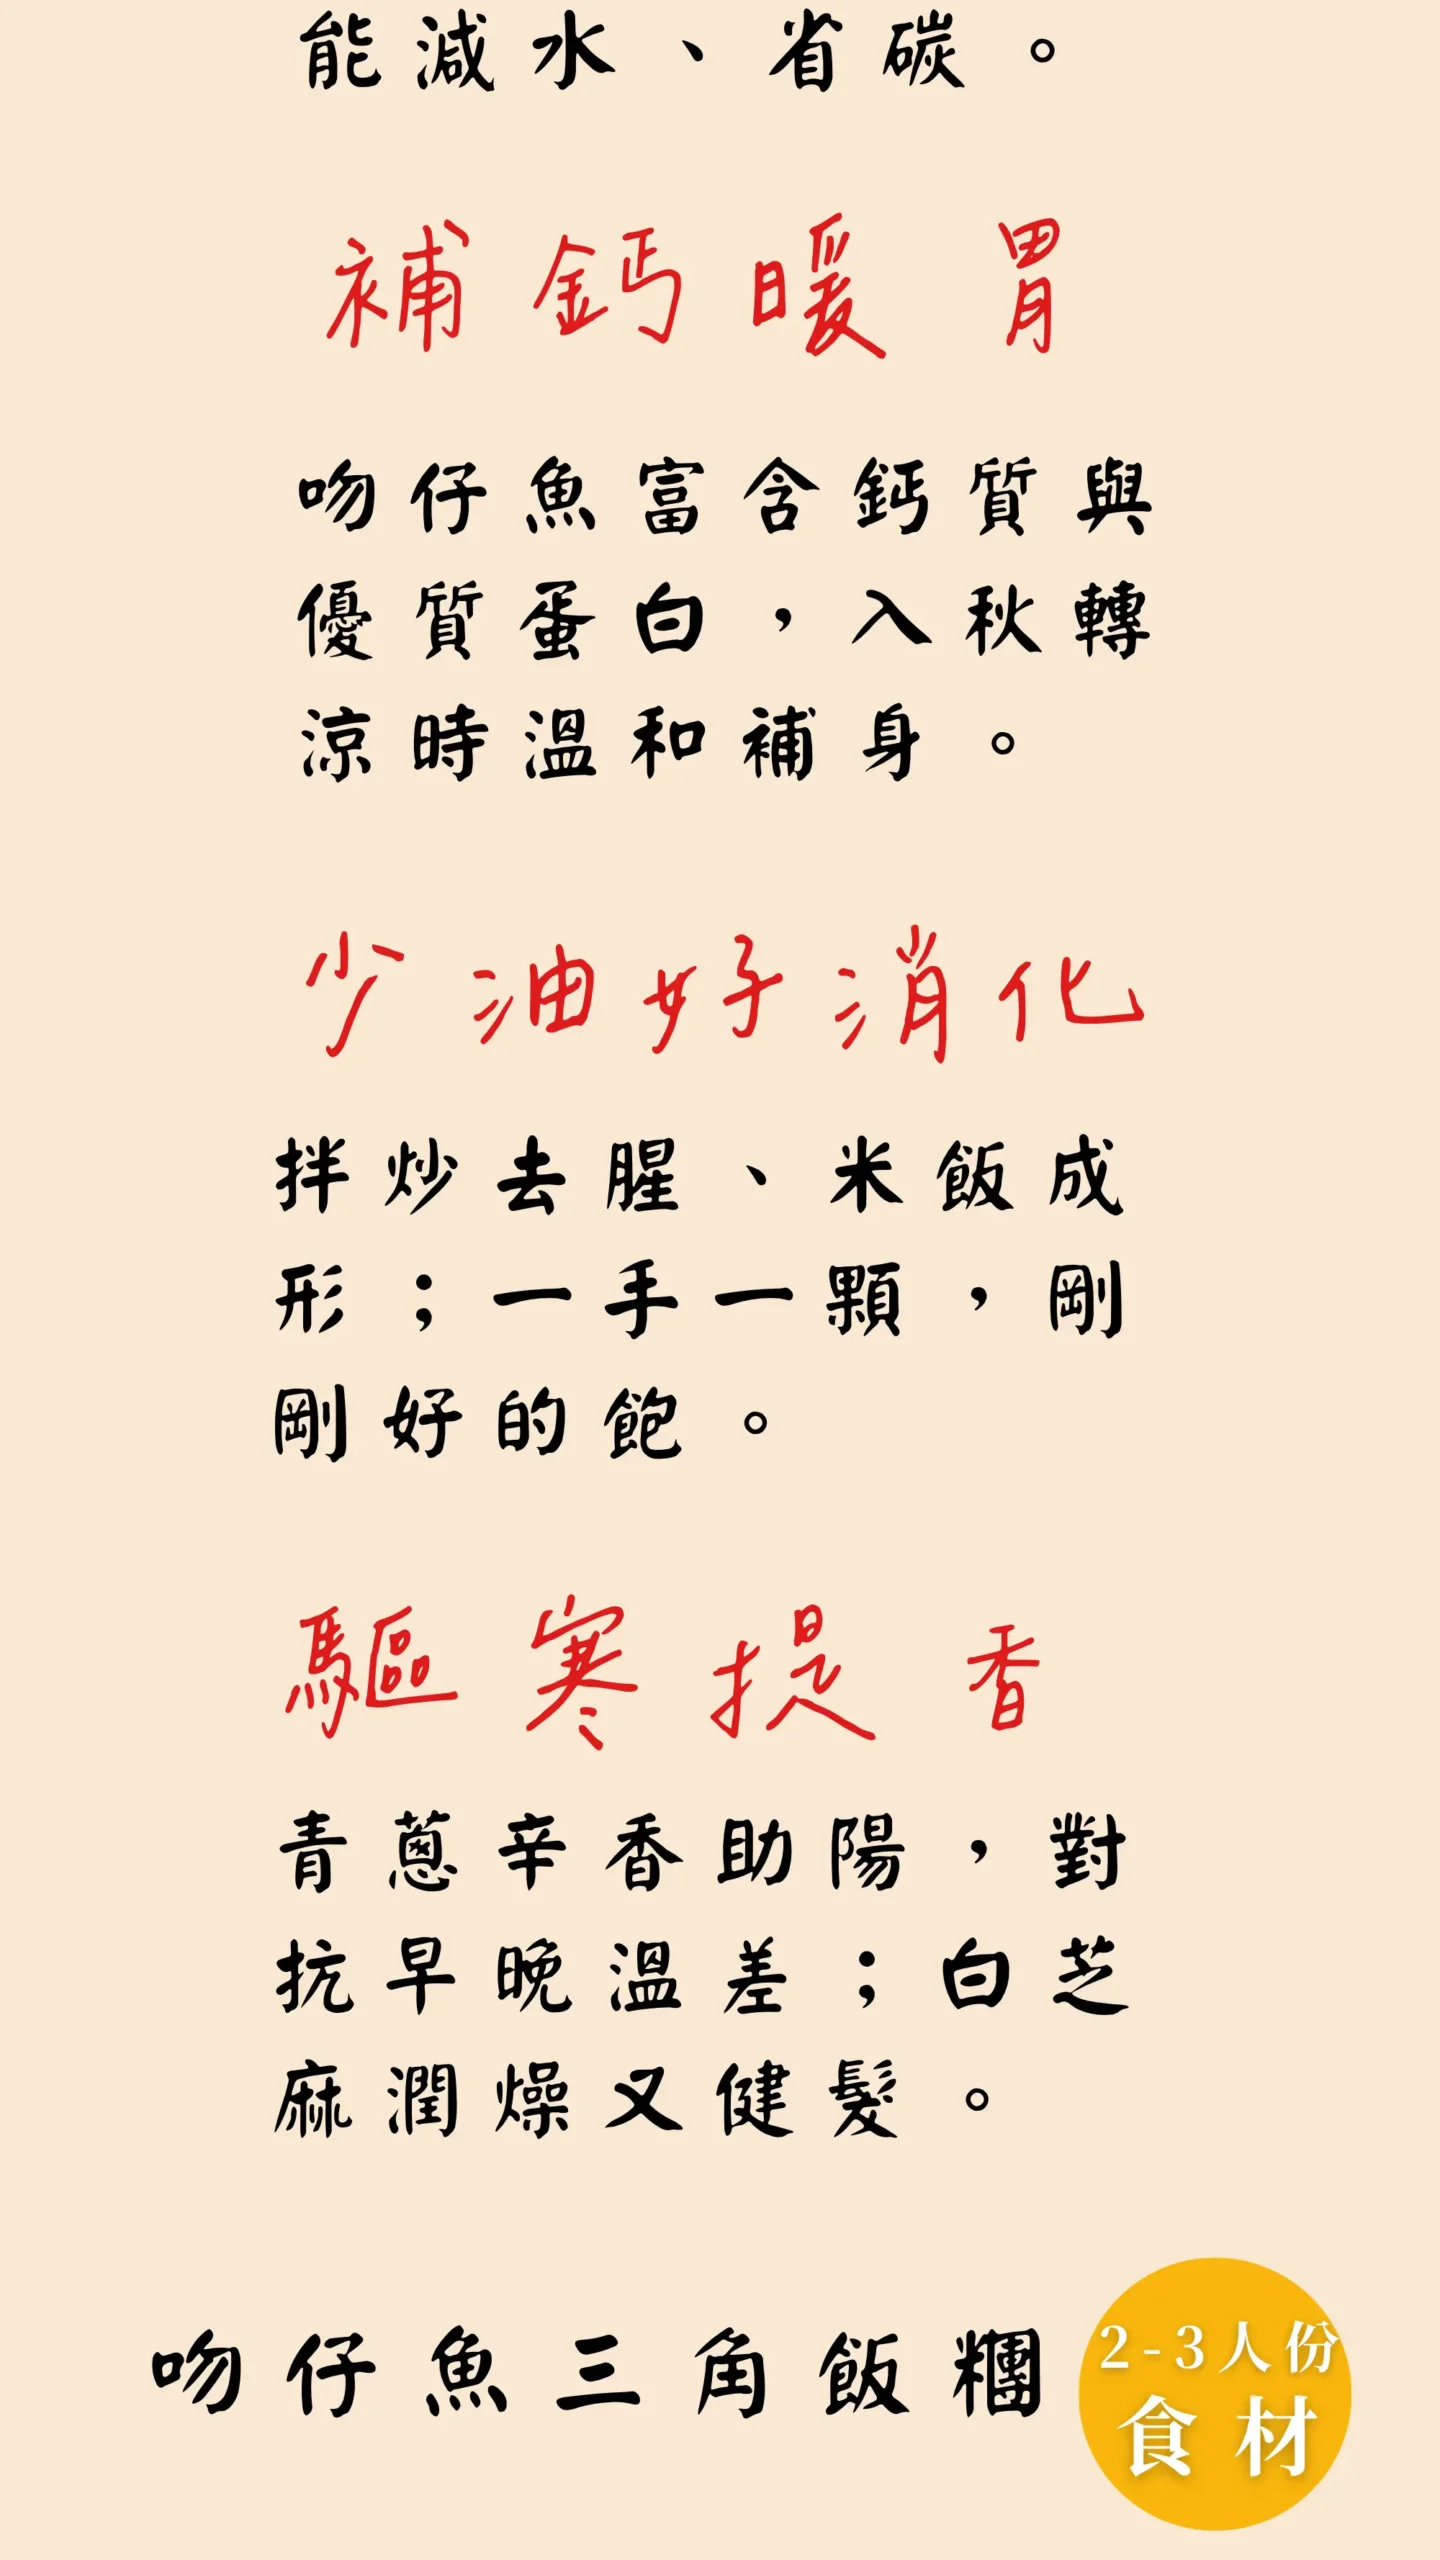 能減水、省碳。
補鈣暖胃
吻仔魚富含鈣質與
優質蛋白，入秋轉
涼時溫和補身。
少油好消化
拌炒去腥、米飯成
形；一手一顆，剛
剛好的飽。
驅寒提香
青蔥辛香助陽，對
抗早晚溫差；白芝
麻潤燥又健髮。
吻仔魚三角飯糰
2-3人份
食材